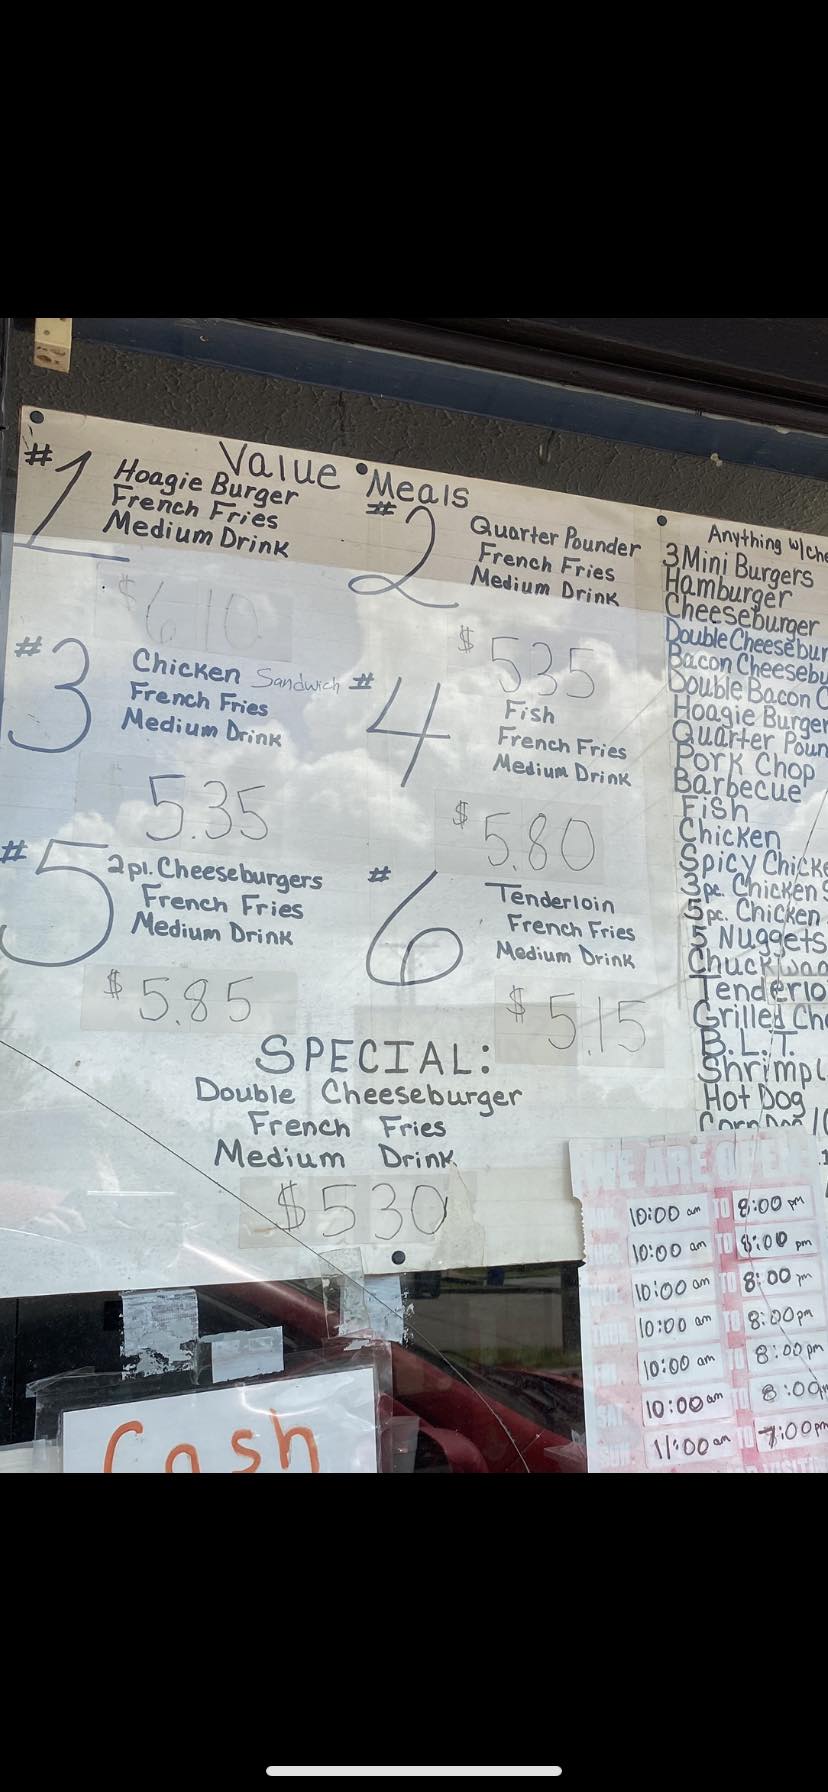 Value Meals
#1
Hoagie Burger
French Fries
Medium Drink
$6.10
#2
Quarter Pounder
French Fries
Medium Drink
$5.35
#3
Chicken Sandwich
French Fries
Medium Drink
5.35
#4
Fish
French Fries
Medium Drink
$5.80
#5
2 pl. Cheeseburgers
French Fries
Medium Drink
$5.85
#6
Tenderloin
French Fries
Medium Drink
$5.15
SPECIAL:
Double Cheeseburger
French Fries
Medium Drink
$530
Anything w/che
3 Mini Burgers
Hamburger
Cheeseburger
Double Cheesebur
Bacon Cheesebu
Double Bacon C
Hoagie Burger
Quarter Poun
Pork Chop
Barbecue
Fish
Chicken
Spicy Chicke
3pc. Chicken S
5pc. Chicken
5 Nuggets
Chuckwag
Tenderlo
Grilled Che
B.L.T.
Shrimp
Hot Dog
Corn Dog
WE ARE OPEN
10:00 am TO 8:00 pm
10:00 am TO 8:00 pm
10:00 am TO 8:00 pm
10:00 am TO 8:00 pm
10:00 am 8:00 pm
SAT 10:00 am 8:00
SUN 11:00 am TO 7:00 pm
Cash